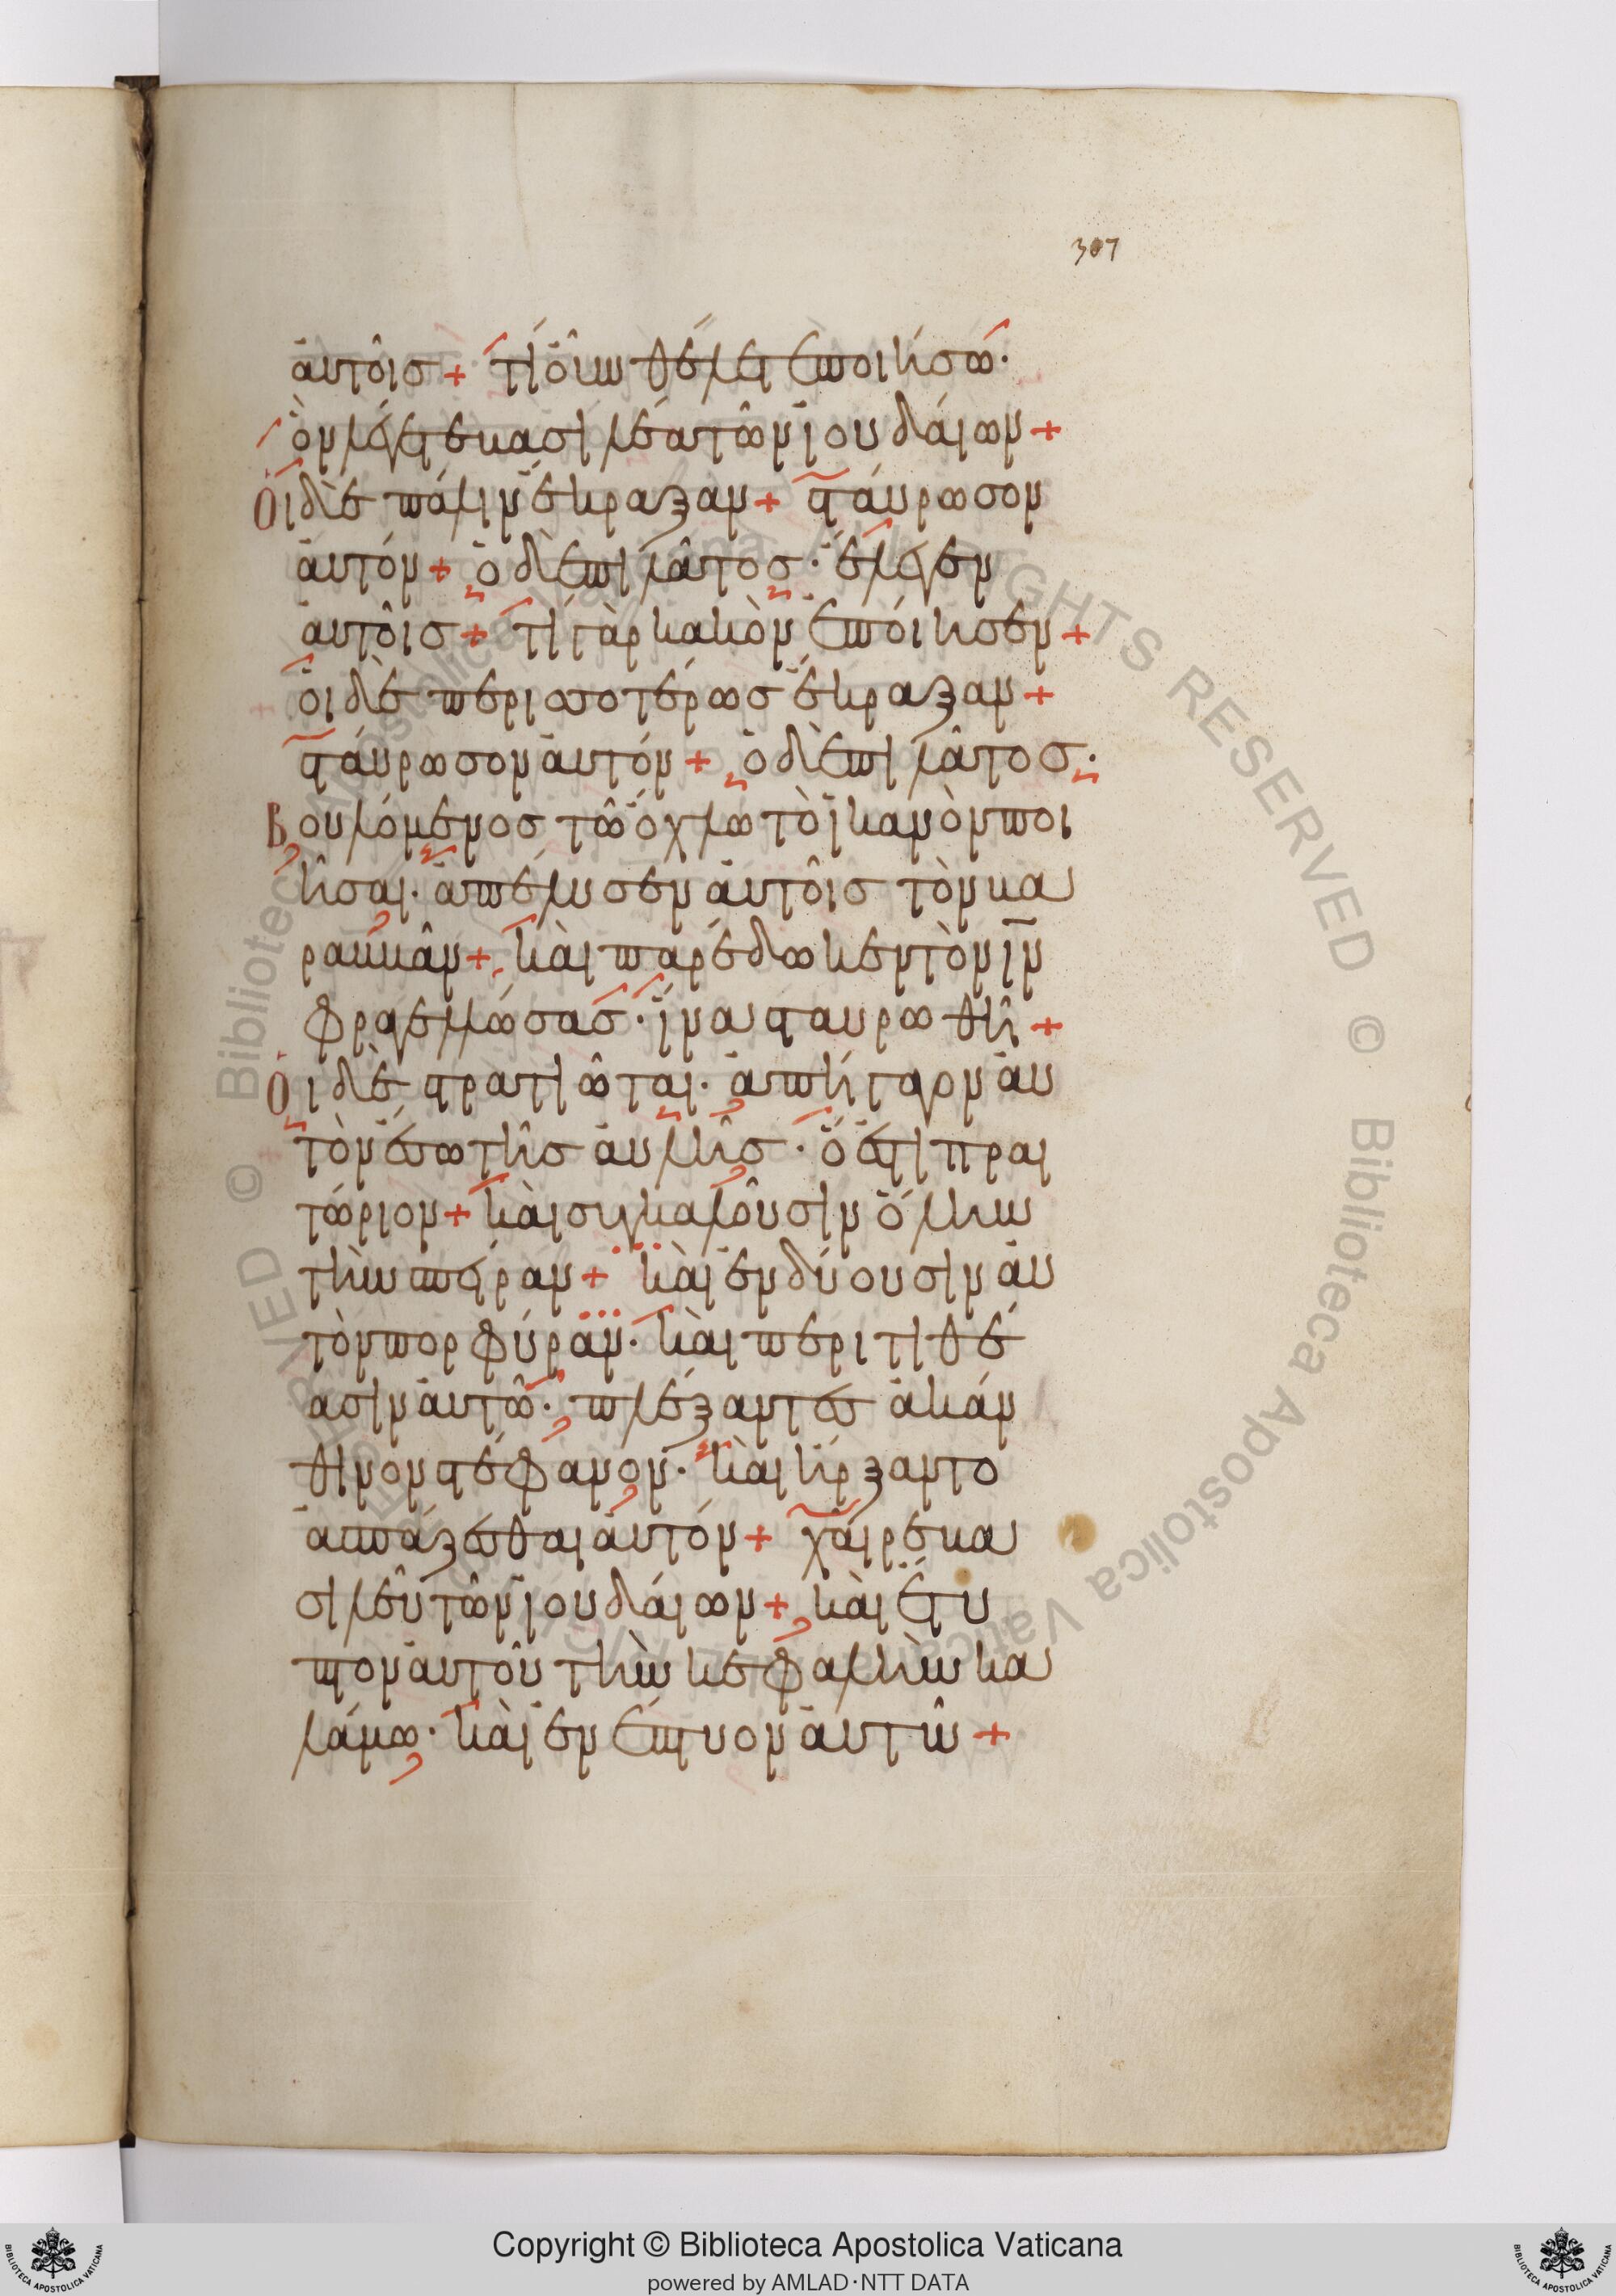 307
ἀυτοῖσ + τί οὖν θέλετε ποιήσω·
ὃν λέγετε βασιλέα τῶν ἰουδάιων +
Οἱ δὲ πάλιν ἔκραξαν + σταύρωσον
ἀυτόν + ὁ δὲ πιλᾶτοσ· ἔλεγεν
ἀυτοῖσ + τί γὰρ κακὸν ἐποίησεν +
ὁι δὲ περισσοτέρωσ ἔκραξαν +
σταύρωσον ἀυτόν + ὁ δὲ πιλᾶτοσ·
Βουλόμενοσ τῶ ὄχλω τὸ ἱκανὸν ποι
ῆσαι· ἀπέλυσεν ἀυτοῖσ τὸν βα
ραββᾶν + κὰι παρέδωκεν τὸν ἰ̅ν̅
φραγελλώσασ· ἵνα σταυρωθῆ +
Οἱ δὲ στρατιῶται· ἀπήγαγον ἀυ
τὸν ἔσω τῆσ ἀυλῆσ· ὅ ἐστι πραι
τώριον + κὰι συγκαλοῦσιν ὅλην
τὴν σπεῖραν + κὰι ἐνδύουσιν ἀυ
τὸν πορφύραν· κὰι περιτιθέ
ασιν ἀυτῶ· πλέξαντεσ ἀκάν
θινον στέφανον· κὰι ἤρξαντο
ἀσπάζεσθαι ἀυτόν + χαῖρε βα
σιλεῦ τῶν ἰουδάιων + κὰι ἔτυ
πτον ἀυτοῦ τὴν κεφαλὴν κα
λάμω· κὰι ἐνέπτυον ἀυτῶ +
Copyright © Biblioteca Apostolica Vaticana
powered by AMLAD·NTT DATA